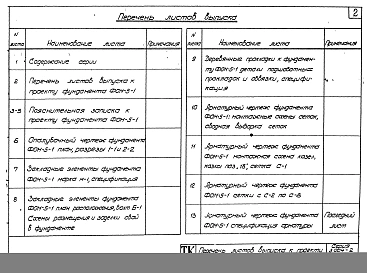 Перечень листов выпуска
2
N листа
Наименование листа
Примечания
1
Содержание серии
2
Перечень листов выпуска к
проекту фундамента ФОН-5-1
3-5
Пояснительная записка к
проекту фундамента ФОН-5-1
6
Опалубочный чертеж фундамента
ФОН-5-1 план, разрезы 1-1 и 2-2
7
Закладные элементы фундамента
ФОН-5-1 марка н-1, спецификация
8
Закладные элементы фундамента
ФОН-5-1 план расположения, болт Б-1
Схемы размещения и заделки свай
в фундаменте
N листа
Наименование листа
Примечания
9
Деревянные прокладки к фундамен-
ту ФОН-5-1 детали подшпальных
прокладок и обвязки, специфи-
кация
10
Арматурный чертеж фундамента
ФОН-5-1: монтажные схемы сеток,
сводная выборка сеток
11
Арматурный чертеж фундамента
ФОН-5-1 монтажная схема козел,
сетка С-1
12
Арматурный чертеж фундамента
ФОН-5-1 сетки с С-2 по С-6
13
Арматурный чертеж фундамента
ФОН-5-1 спецификация арматуры
Последний
лист
ТК
Перечень листов выпуска к проекту
Серия